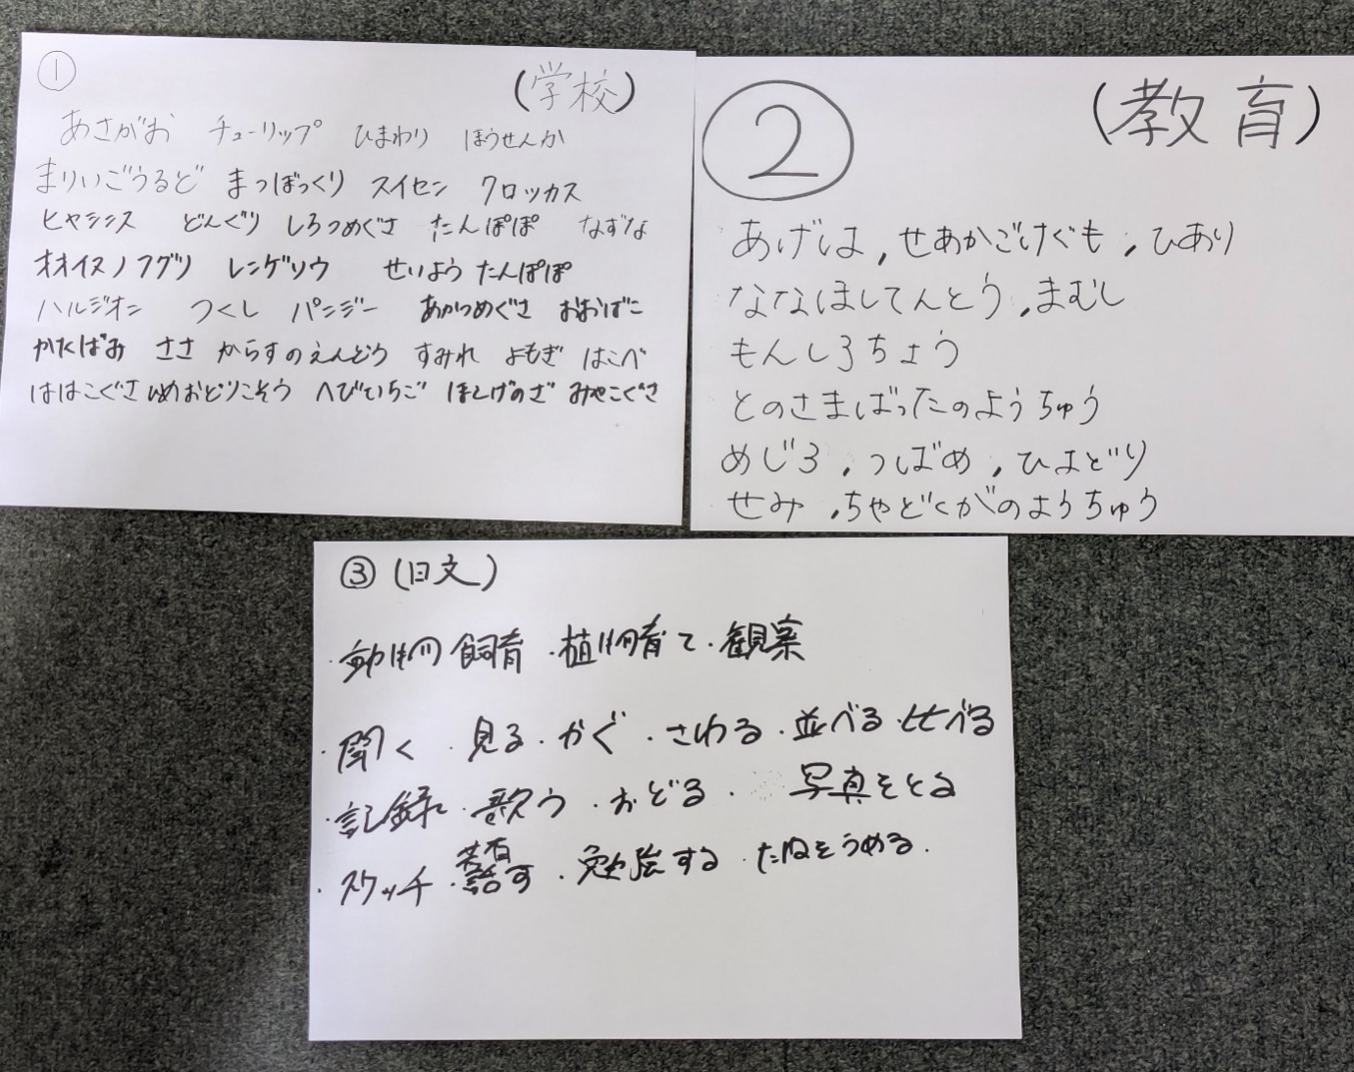 ①
(学校)
あさがお チューリップ ひまわり ほうせんか
まりいごうるど まつぼっくり スイセン クロッカス
ヒヤシンス どんぐり しろつめぐさ たんぽぽ なずな
オオイヌノフグリ レンゲソウ せいようたんぽぽ
ハルジオン つくし パンジー あかつめぐさ おおばこ
かたばみ ささ からすのえんどう すみれ よもぎ はこべ
ははこぐさ ひめおどりこそう へびいちご ほとけのざ みやこぐさ
②
(教育)
あげは,せあかごけぐも,ひあり
ななほしてんとう,まむし
もんしろちょう
とのさまばったのようちゅう
めじろ,つばめ,ひよどり
せみ,ちゃどくがのようちゅう
③(日文)
・動物飼育・植物育て・観察
・聞く・見る・かぐ・さわる・並べる・比べる
・記録・歌う・おどる・写真をとる
・スケッチ・話す・勉強する・たねをうめる.